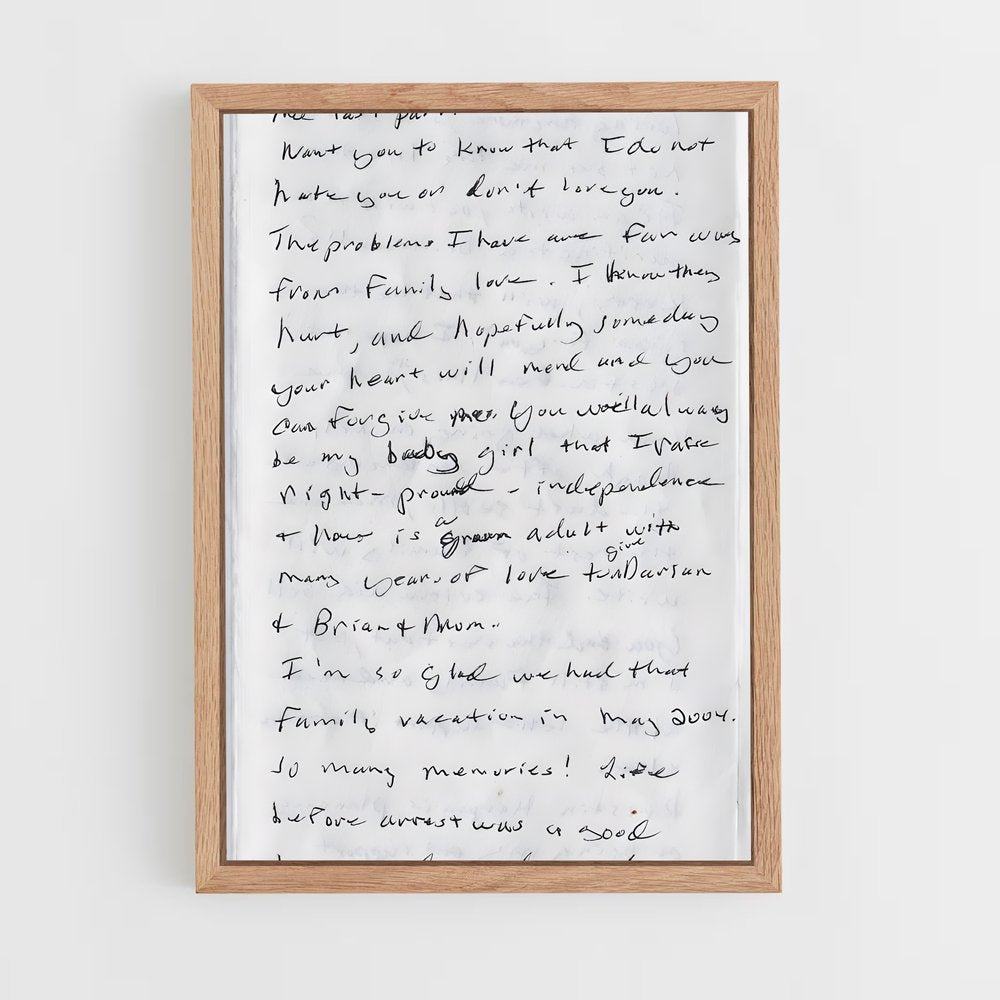 Want you to know that I do not
hate you or don't love you.
The problems I have are far away
from Family love. I know they
hurt, and hopefully someday
your heart will mend and you
can forgive me. You will always
be my baby girl that I raise
right - proud - independence
& now is a grown adult with
many years of love to give Darian
& Brian & Mom..
I'm so glad we had that
Family vacation in May 2004.
so many memories! Life
before arrest was a good